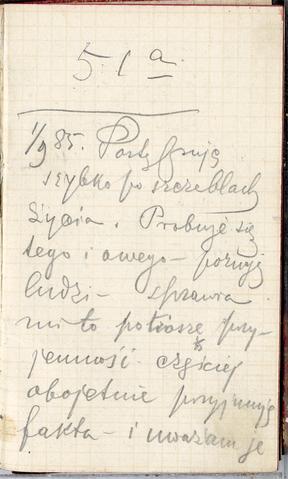 51a
1/9 85. Postępuję
szybko po szczeblach
życia. Probuję się
tego i owego - poznaję
ludzi - sprawia
mi to potrosze przy-
jemność częściej
obojętnie przyjmuję
fakta - i uważam je